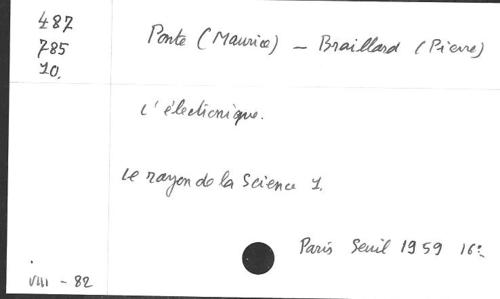 487
785
10.
Ponte (Maurice) - Braillard (Pierre)
L'électronique.
Le rayon de la Science 1.
Paris Seuil 1959 16º
VIII - 82